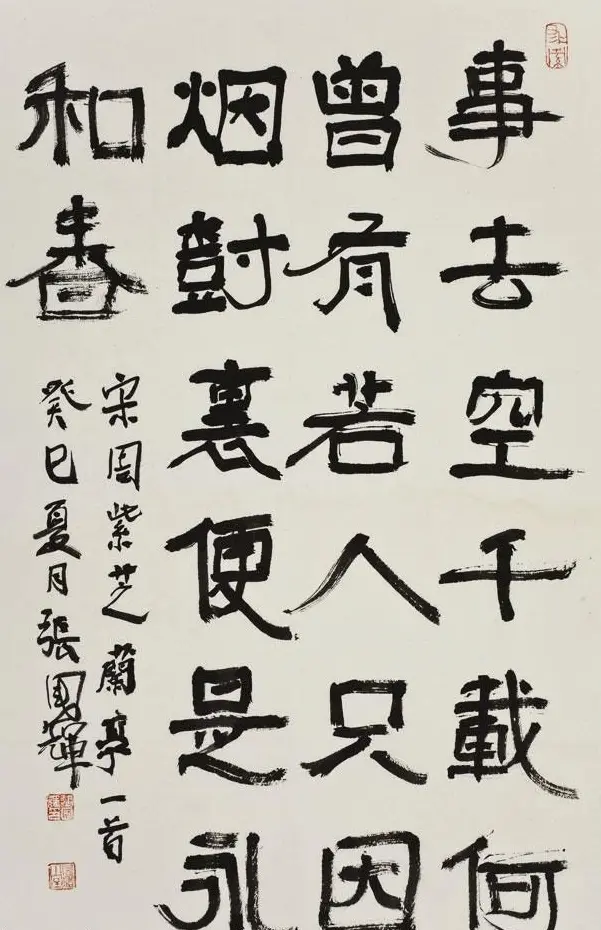 事去空千載何
曾有若人只因
烟對裏便是永
和春
宋周紫芝蘭亭一首
癸巳夏月張圍輝